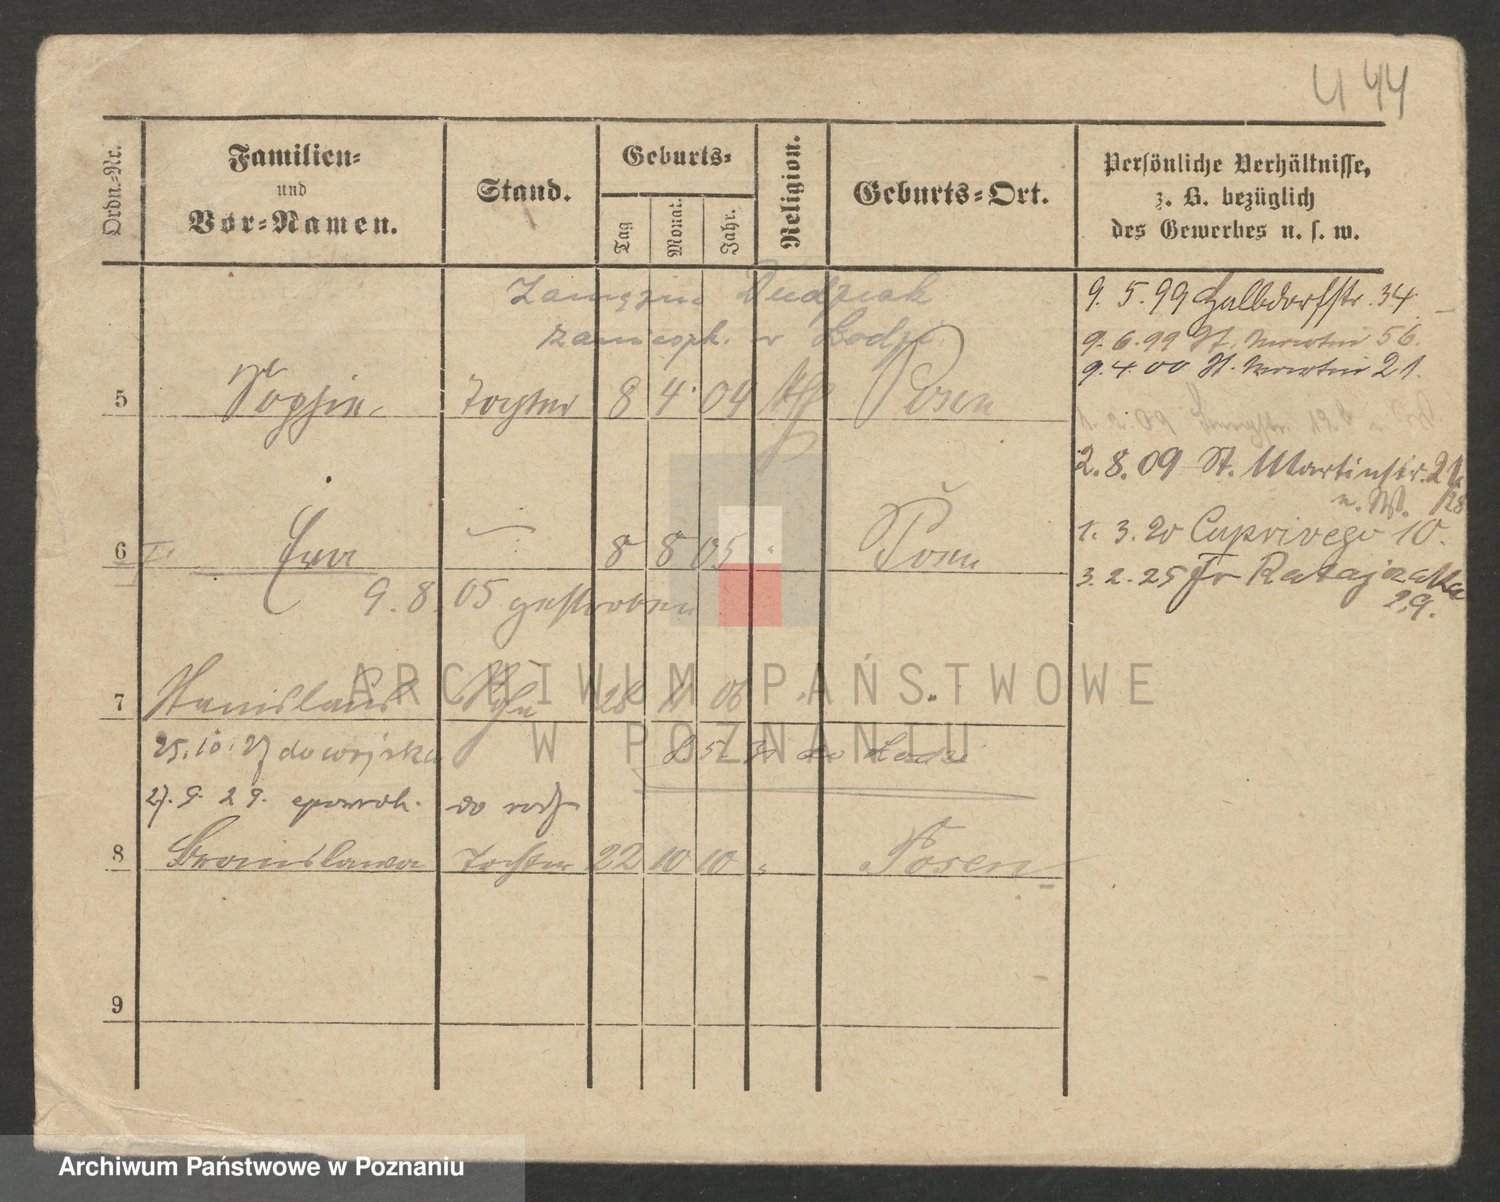 444
Ordn.-Nr.
Familien-
und
Vor-Namen.
Stand.
Geburts-
Tag
Monat.
Jahr.
Religion.
Geburts-Ort.
Persönliche Verhältnisse,
z. B. bezüglich
des Gewerbes u. s. w.
9. 5. 99 Halbdorfstr. 34
zamieszk. w Łodzi
9. 6. 99 St. Martin 56.
9. 4. 00 St. Martin 21.
5 Sophie Tochter 8 4 04 Posen
1. 2. 09
2. 8. 09 St. Martinstr.
1. 3. 20 Caprivego 10.
6 Ewa 8 8 05 Posen
3. 2. 25 Fr Ratajczaka
29.
9. 8. 05 gestorben
ARCHIWUM PAŃSTWOWE
W POZNANIU
7 Stanislaus 06
25. 10. 27 do wojska
do Łodzi
27. 9. 29.
8 Bronislawa Tochter 22 10 10 Posen
9
Archiwum Państwowe w Poznaniu